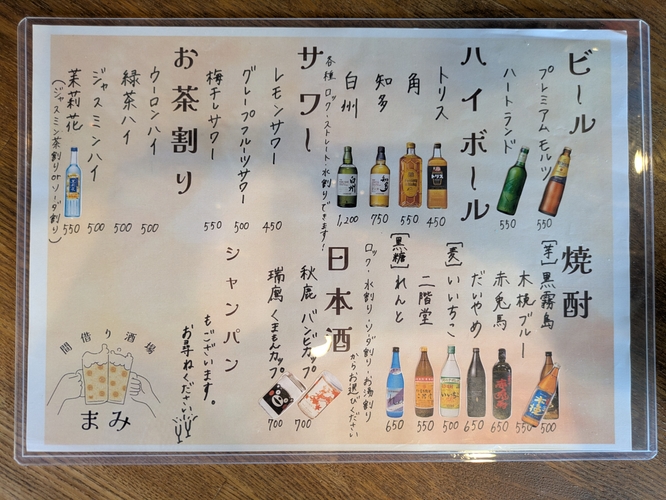 ビール
プレミアムモルツ 550
ハートランド 550
ハイボール
トリス 450
角 550
知多 750
白州 1,200
各種ロック・ストレート・水割りできます!
サワー
レモンサワー 450
グレープフルーツサワー 500
梅干しサワー 550
お茶割り
ウーロンハイ 500
緑茶ハイ 500
ジャスミンハイ 500
茉莉花 550
(ジャスミン茶割り or ソーダ割り)
焼酎
[芋] 黒霧島 500
木挽ブルー 550
赤兎馬 650
だいやめ 650
[麦] いいちこ 500
二階堂 550
[黒糖] れんと 650
ロック・水割り・ソーダ割り・お湯割り
からお選びください
日本酒
秋鹿 バンビカップ 700
瑞鷹 くまもんカップ 700
シャンパン
もございます。
お尋ねください
間借り酒場
まみ